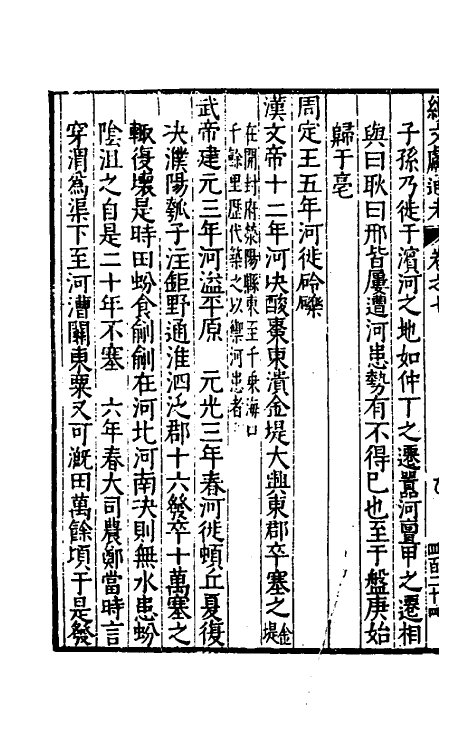 續文獻通考 卷之七
子孫乃徙于濱河之地如仲丁之遷囂河亶甲之遷相
與曰耿曰邢皆屢遭河患勢有不得已也至于盤庚始
歸于亳
周定王五年河徙砱礫
漢文帝十二年河決酸棗東潰金堤大興東郡卒塞之金堤
在開封府滎陽縣東至千乘海口
千餘里歷代築之以禦河患者
武帝建元三年河溢平原 元光三年春河徙頓丘夏復
決濮陽瓠子注鉅野通淮泗泛郡十六發卒十萬塞之
輙復壞是時田蚡食鄃鄃在河北河南决則無水患蚡
陰沮之自是二十年不塞 六年春大司農鄭當時言
穿渭爲渠下至河漕關東粟又可溉田萬餘頃于是發